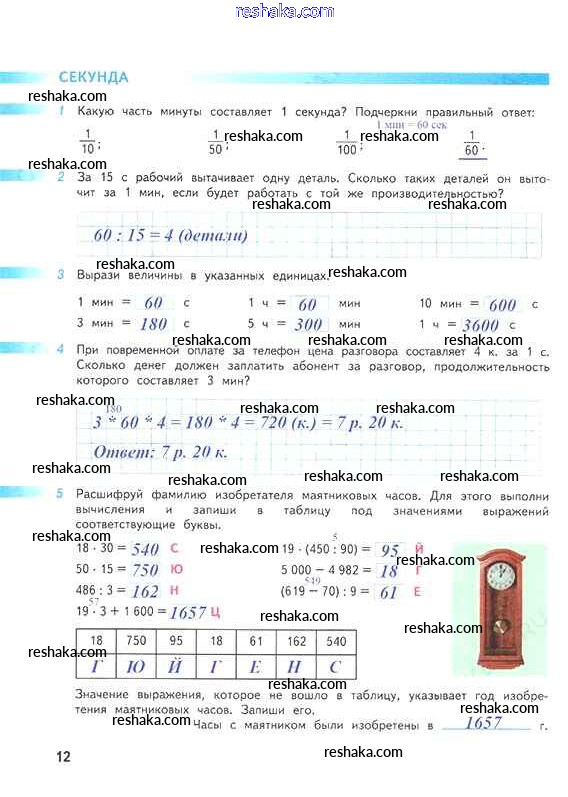 reshaka.com
СЕКУНДА
reshaka.com
1 Какую часть минуты составляет 1 секунда? Подчеркни правильный ответ:
1 мин = 60 сек
1/10; 1/50; reshaka.com 1/100; reshaka.com 1/60.
reshaka.com
2 За 15 с рабочий вытачивает одну деталь. Сколько таких деталей он выто-
чит за 1 мин, если будет работать с той же производительностью?
reshaka.com reshaka.com
60 : 15 = 4 (детали)
reshaka.com
3 Вырази величины в указанных единицах. reshaka.com
1 мин = 60 с 1 ч = 60 мин 10 мин = 600 с
3 мин = 180 с 5 ч = 300 мин 1 ч = 3600 с
reshaka.com reshaka.com
4 При повременной оплате за телефон цена разговора составляет 4 к. за 1 с.
Сколько денег должен заплатить абонент за разговор, продолжительность
которого составляет 3 мин?
reshaka.com reshaka.com reshaka.com
180
3 * 60 * 4 = 180 * 4 = 720 (к.) = 7 р. 20 к.
Ответ: 7 р. 20 к.
reshaka.com reshaka.com reshaka.com
5 Расшифруй фамилию изобретателя маятниковых часов. Для этого выполни
вычисления и запиши в таблицу под значениями выражений
соответствующие буквы.
reshaka.com
5
18 · 30 = 540 С reshaka.com 19 · (450 : 90) = 95 Й reshaka.com
50 · 15 = 750 Ю 5 000 – 4 982 = 18 Г
549
486 : 3 = 162 Н (619 – 70) : 9 = 61 Е
57
19 · 3 + 1 600 = 1657 Ц reshaka.com reshaka.com
18 750 95 18 61 162 540
Г Ю Й Г Е Н С
reshaka.com reshaka.com reshaka.com
Значение выражения, которое не вошло в таблицу, указывает год изобре-
тения маятниковых часов. Запиши его.
reshaka.com reshaka.com
Часы с маятником были изобретены в 1657 г.
12
reshaka.com reshaka.com